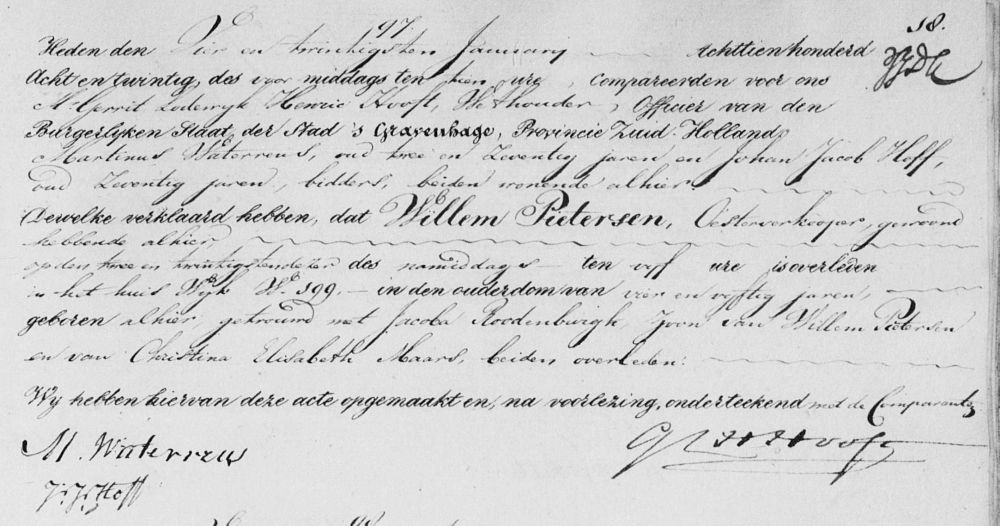 197.
18.
Heden den Vier en twintigsten January Achttienhonderd
Acht en twintig, des voor middags ten tien ure, Compareerden voor ons
Mr. Gerrit Lodewyk Henric Hooft, Wethouder, Officier van den
Burgerlyken Staat, der Stad 's Gravenhage, Provincie Zuid-Holland,
Martinus Waterreus, oud twee en Zeventig jaren en Johan Jacob Hoff,
oud Zeventig jaren, bidders, beiden wonende alhier
Dewelke verklaard hebben, dat Willem Pietersen, Oesterverkooper, gewoond
hebbende alhier
op den twee en twintigsten dezer des namiddags ten vyf ure is overleden
in het huis Wyk W. 199. in den ouderdom van vier en vyftig jaren,
geboren alhier, getrouwd met Jacoba Roodenburgh, Zoon van Willem Pietersen
en van Christina Elisabeth Maars, beiden overleden.
Wy hebben hiervan deze acte opgemaakt en, na voorlezing, onderteekend met de Comparanten
M. Waterreus
G L H Hooft
J. J. Hoff
98